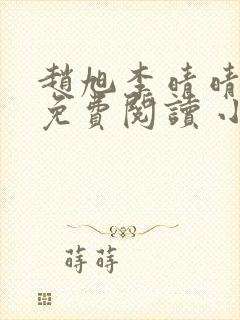 趙旭李晴晴
免費閱讀小
蒔蒔